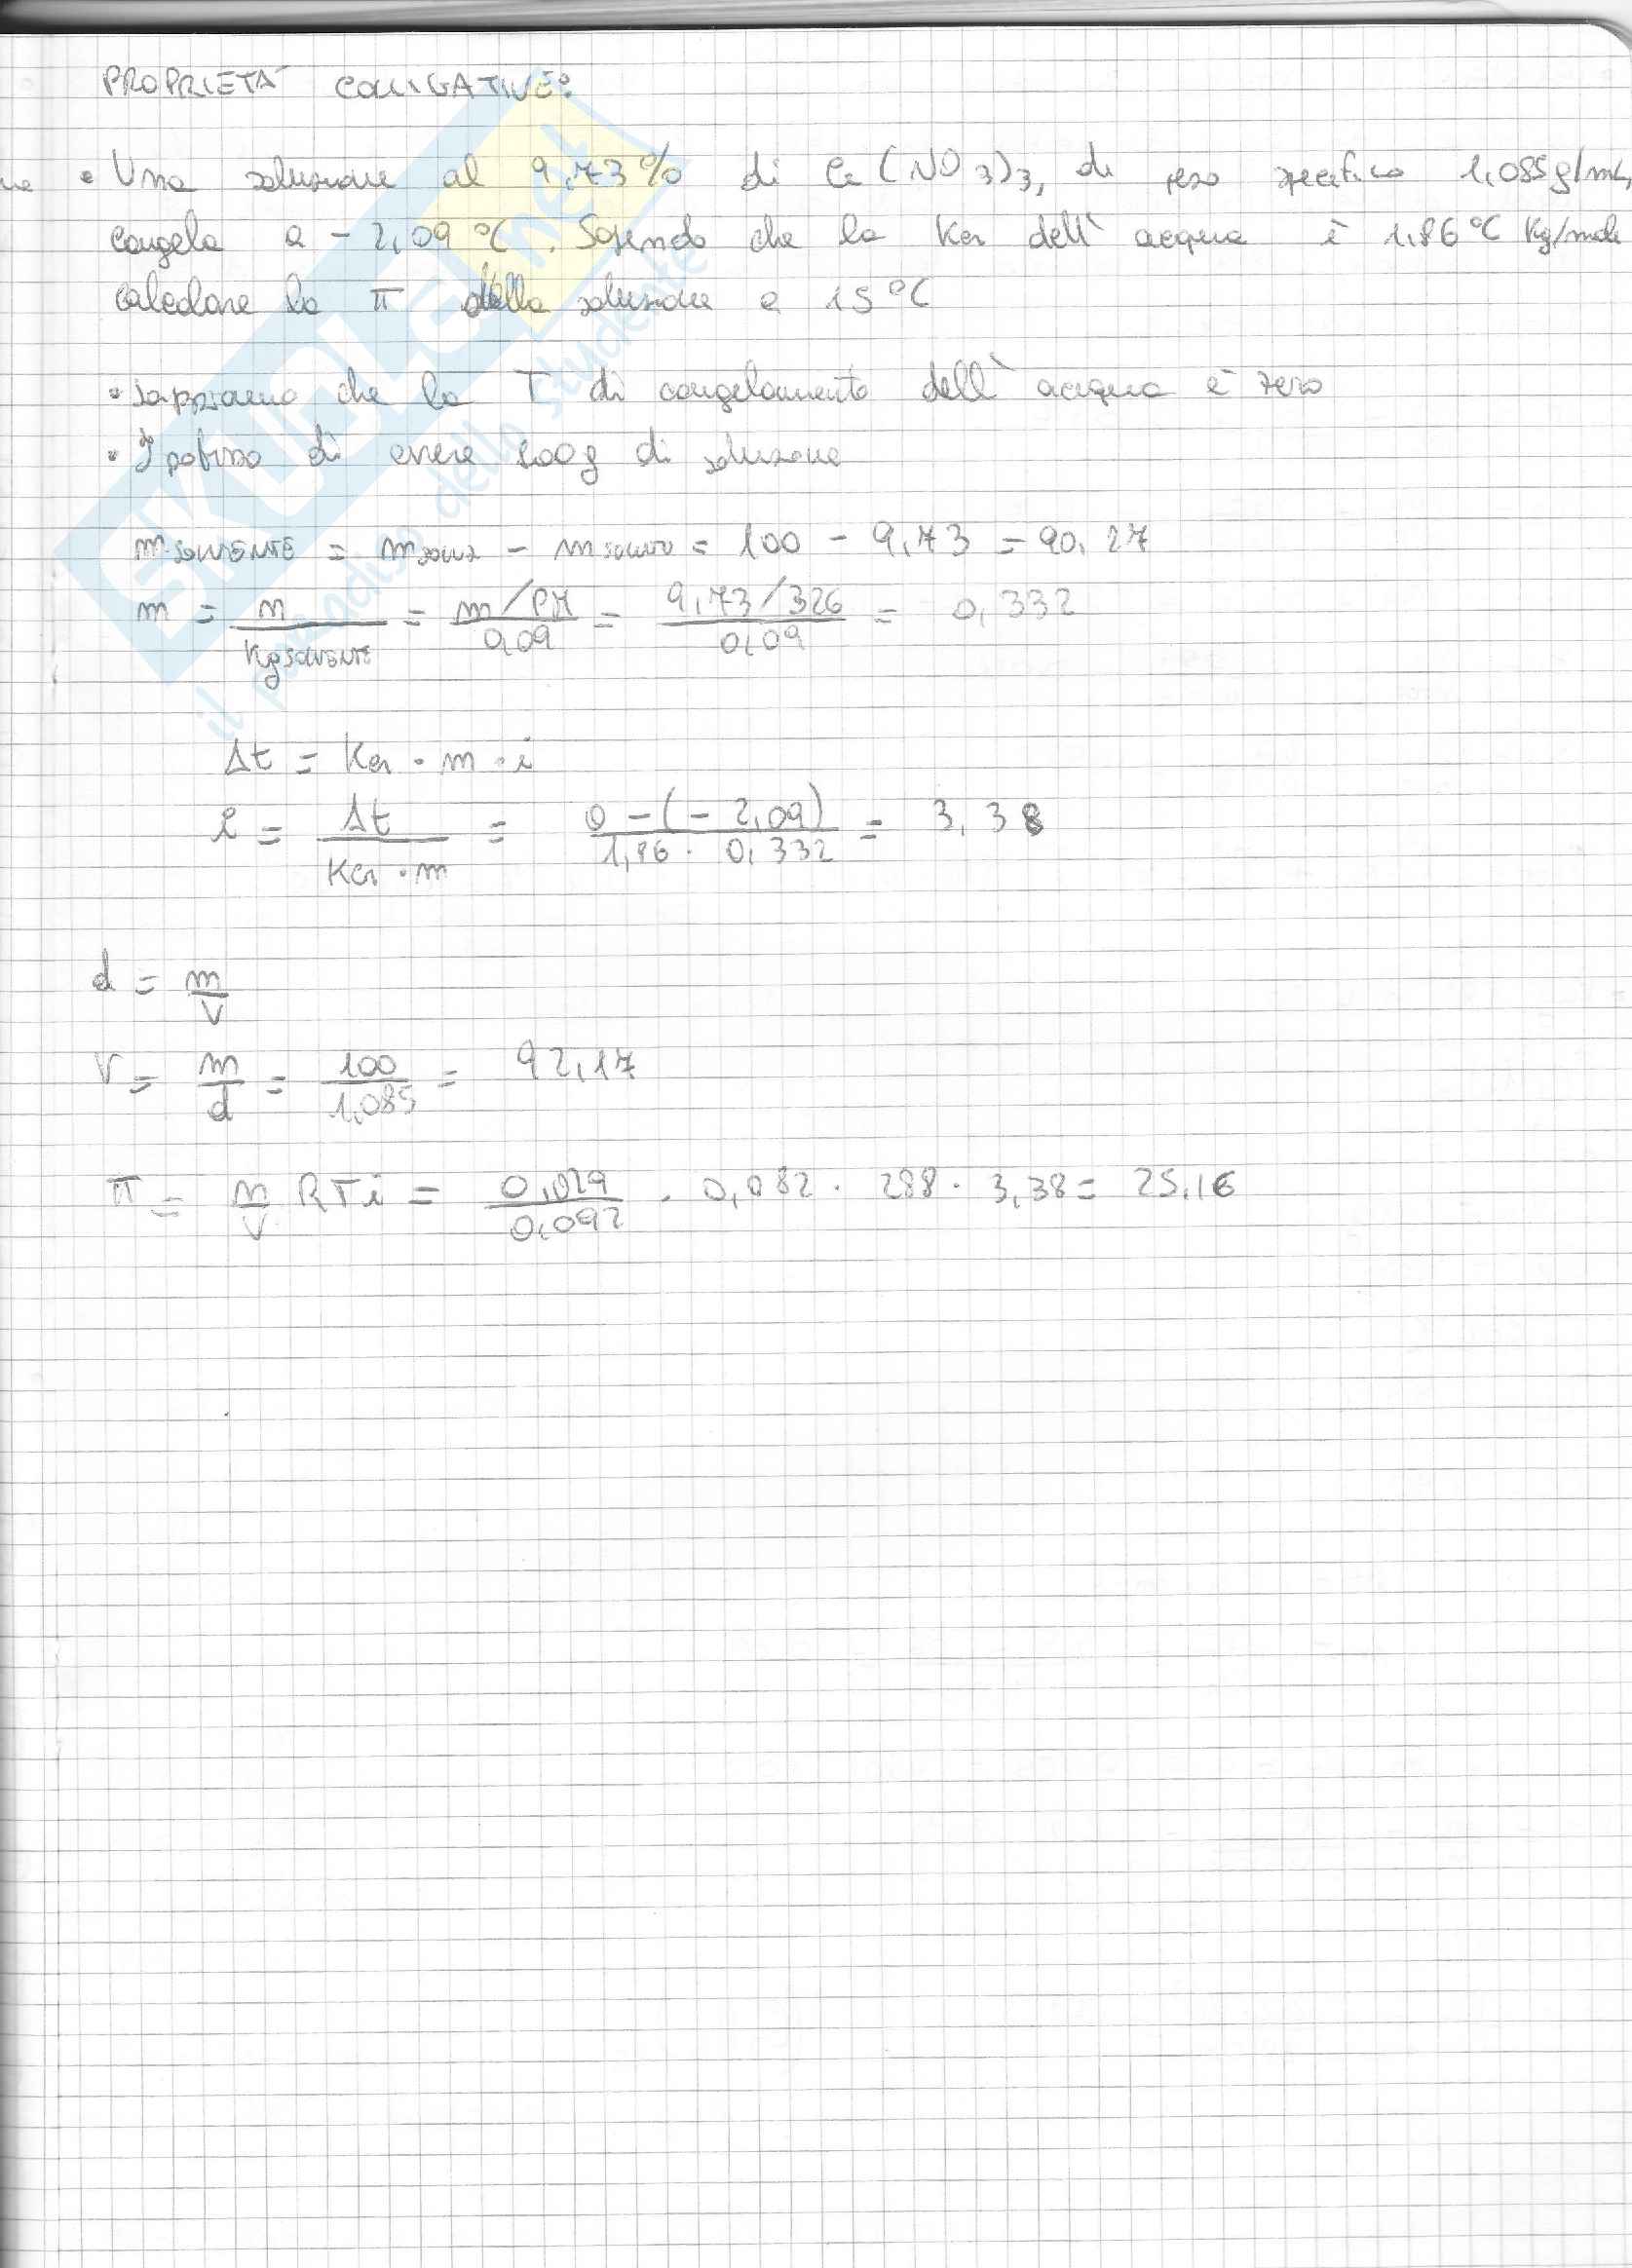 PROPRIETA' COLLIGATIVE:
• Una soluzione al 9,73% di Ce(NO3)3, di peso specifico 1,085g/mL,
congela a -2,09 °C. Sapendo che la Kcr dell' acqua è 1,86 °C Kg/mole
calcolare la π della soluzione a 15 °C
• sappiamo che la T di congelamento dell' acqua è zero
• Ipotizzo di avere 100g di soluzione
m SOLVENTE = m soluz - m soluto = 100 - 9,73 = 90,27
m = n / Kg SOLVENTE = m/PM / 0,09 = 9,73/326 / 0,09 = 0,332
Δt = Kcr · m · i
i = Δt / Kcr · m = 0-(-2,09) / 1,86 · 0,332 = 3,38
d = m / V
V = m / d = 100 / 1,085 = 92,17
π = n / V RTi = 0,029 / 0,092 · 0,082 · 288 · 3,38 = 25,16
SKUOLA.net
il paradiso dello studente